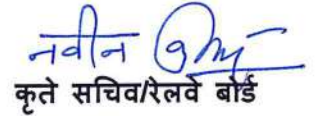 नवीन
कृते सचिव/रेलवे बोर्ड